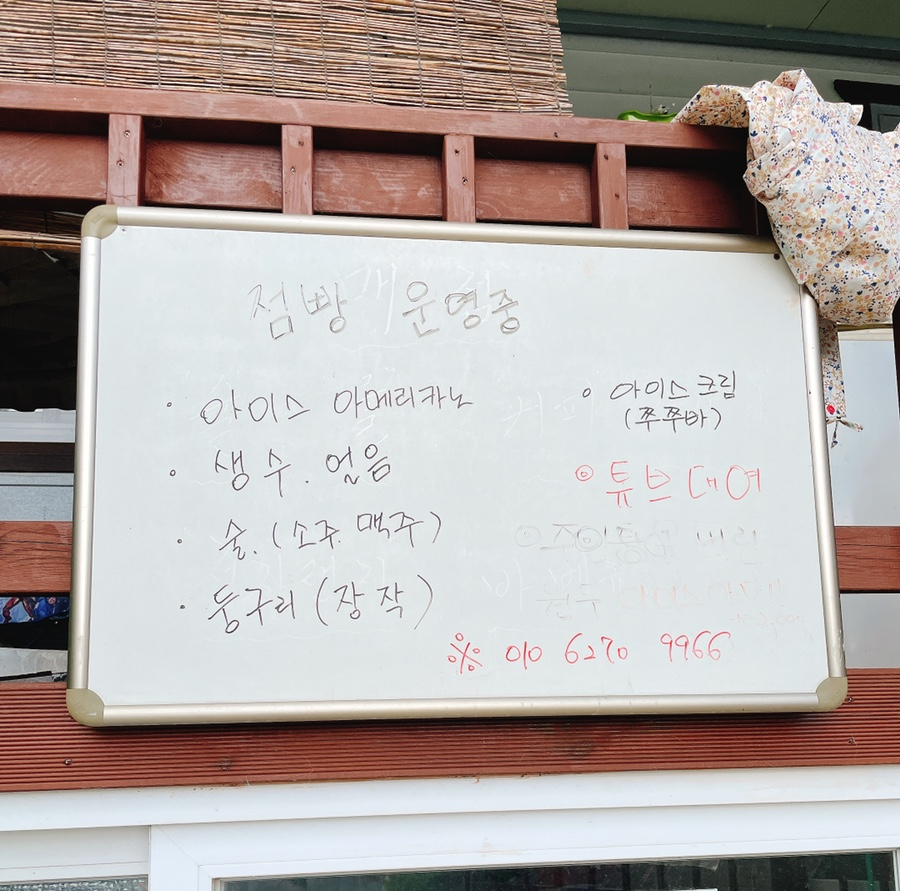 점빵 운영중
• 아이스 아메리카노
• 생수. 얼음
• 술. (소주. 맥주)
• 둥구리 (장작)
• 아이스크림
(쮸쮸바)
◎ 튜브 대여
※ 010 6270 9966